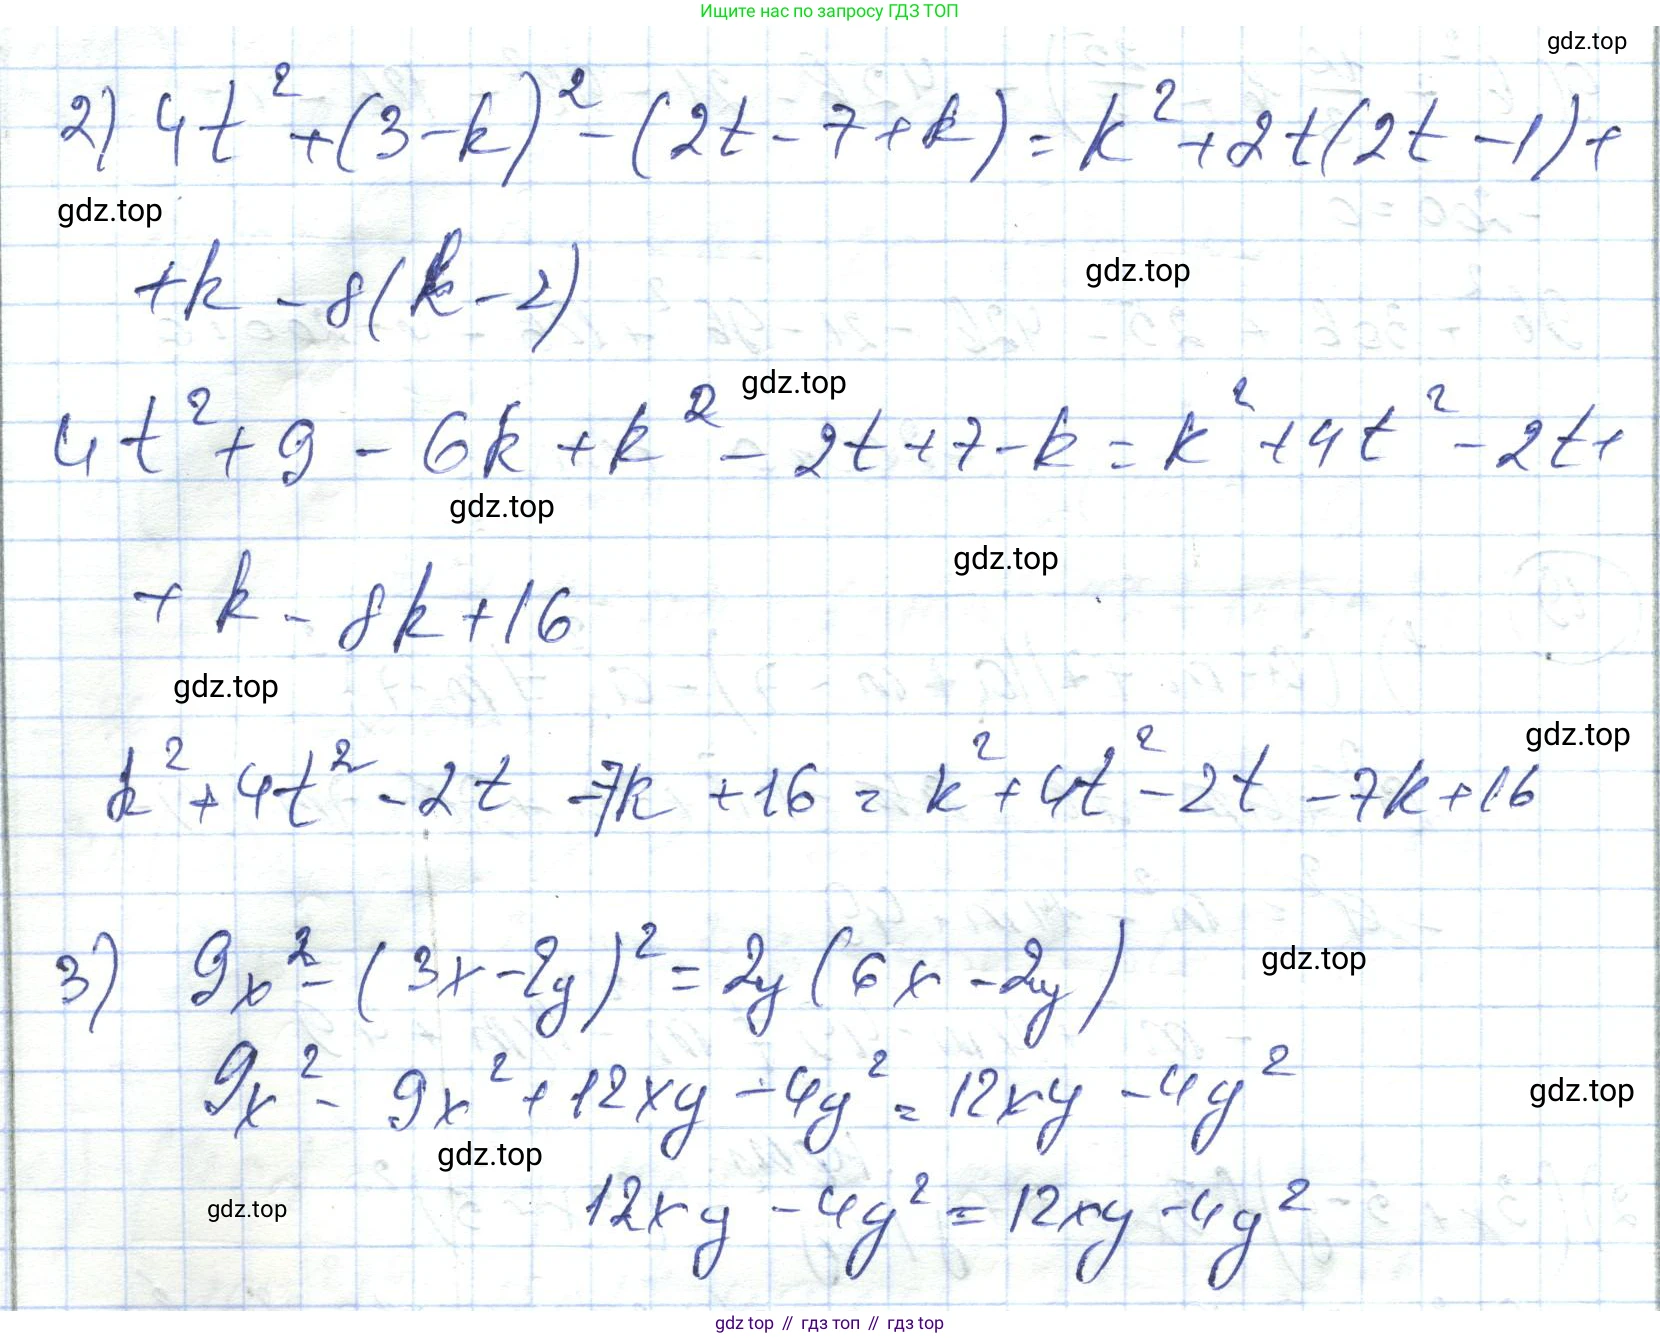 Ищите нас по запросу ГДЗ ТОП
gdz.top
2) 4t² + (3 - k)² - (2t - 7 + k) = k² + 2t(2t - 1) +
gdz.top
+ k - 8(k - 2)
gdz.top
gdz.top
4t² + 9 - 6k + k² - 2t + 7 - k = k² + 4t² - 2t +
gdz.top
gdz.top
+ k - 8k + 16
gdz.top
gdz.top
k² + 4t² - 2t - 7k + 16 = k² + 4t² - 2t - 7k + 16
3) 9x² - (3x - 2y)² = 2y(6x - 2y)
gdz.top
9x² - 9x² + 12xy - 4y² = 12xy - 4y²
gdz.top
gdz.top
12xy - 4y² = 12xy - 4y²
gdz.top
gdz top // гдз топ // гдз top